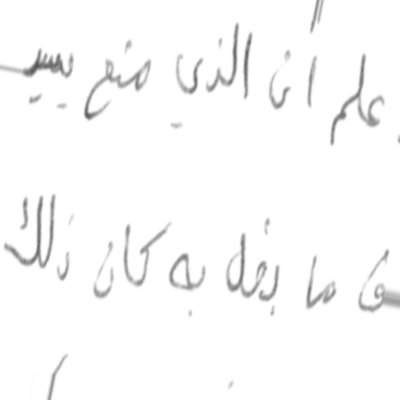 علم أن الذي منع يسير
ق ما بخل به كان ذلك